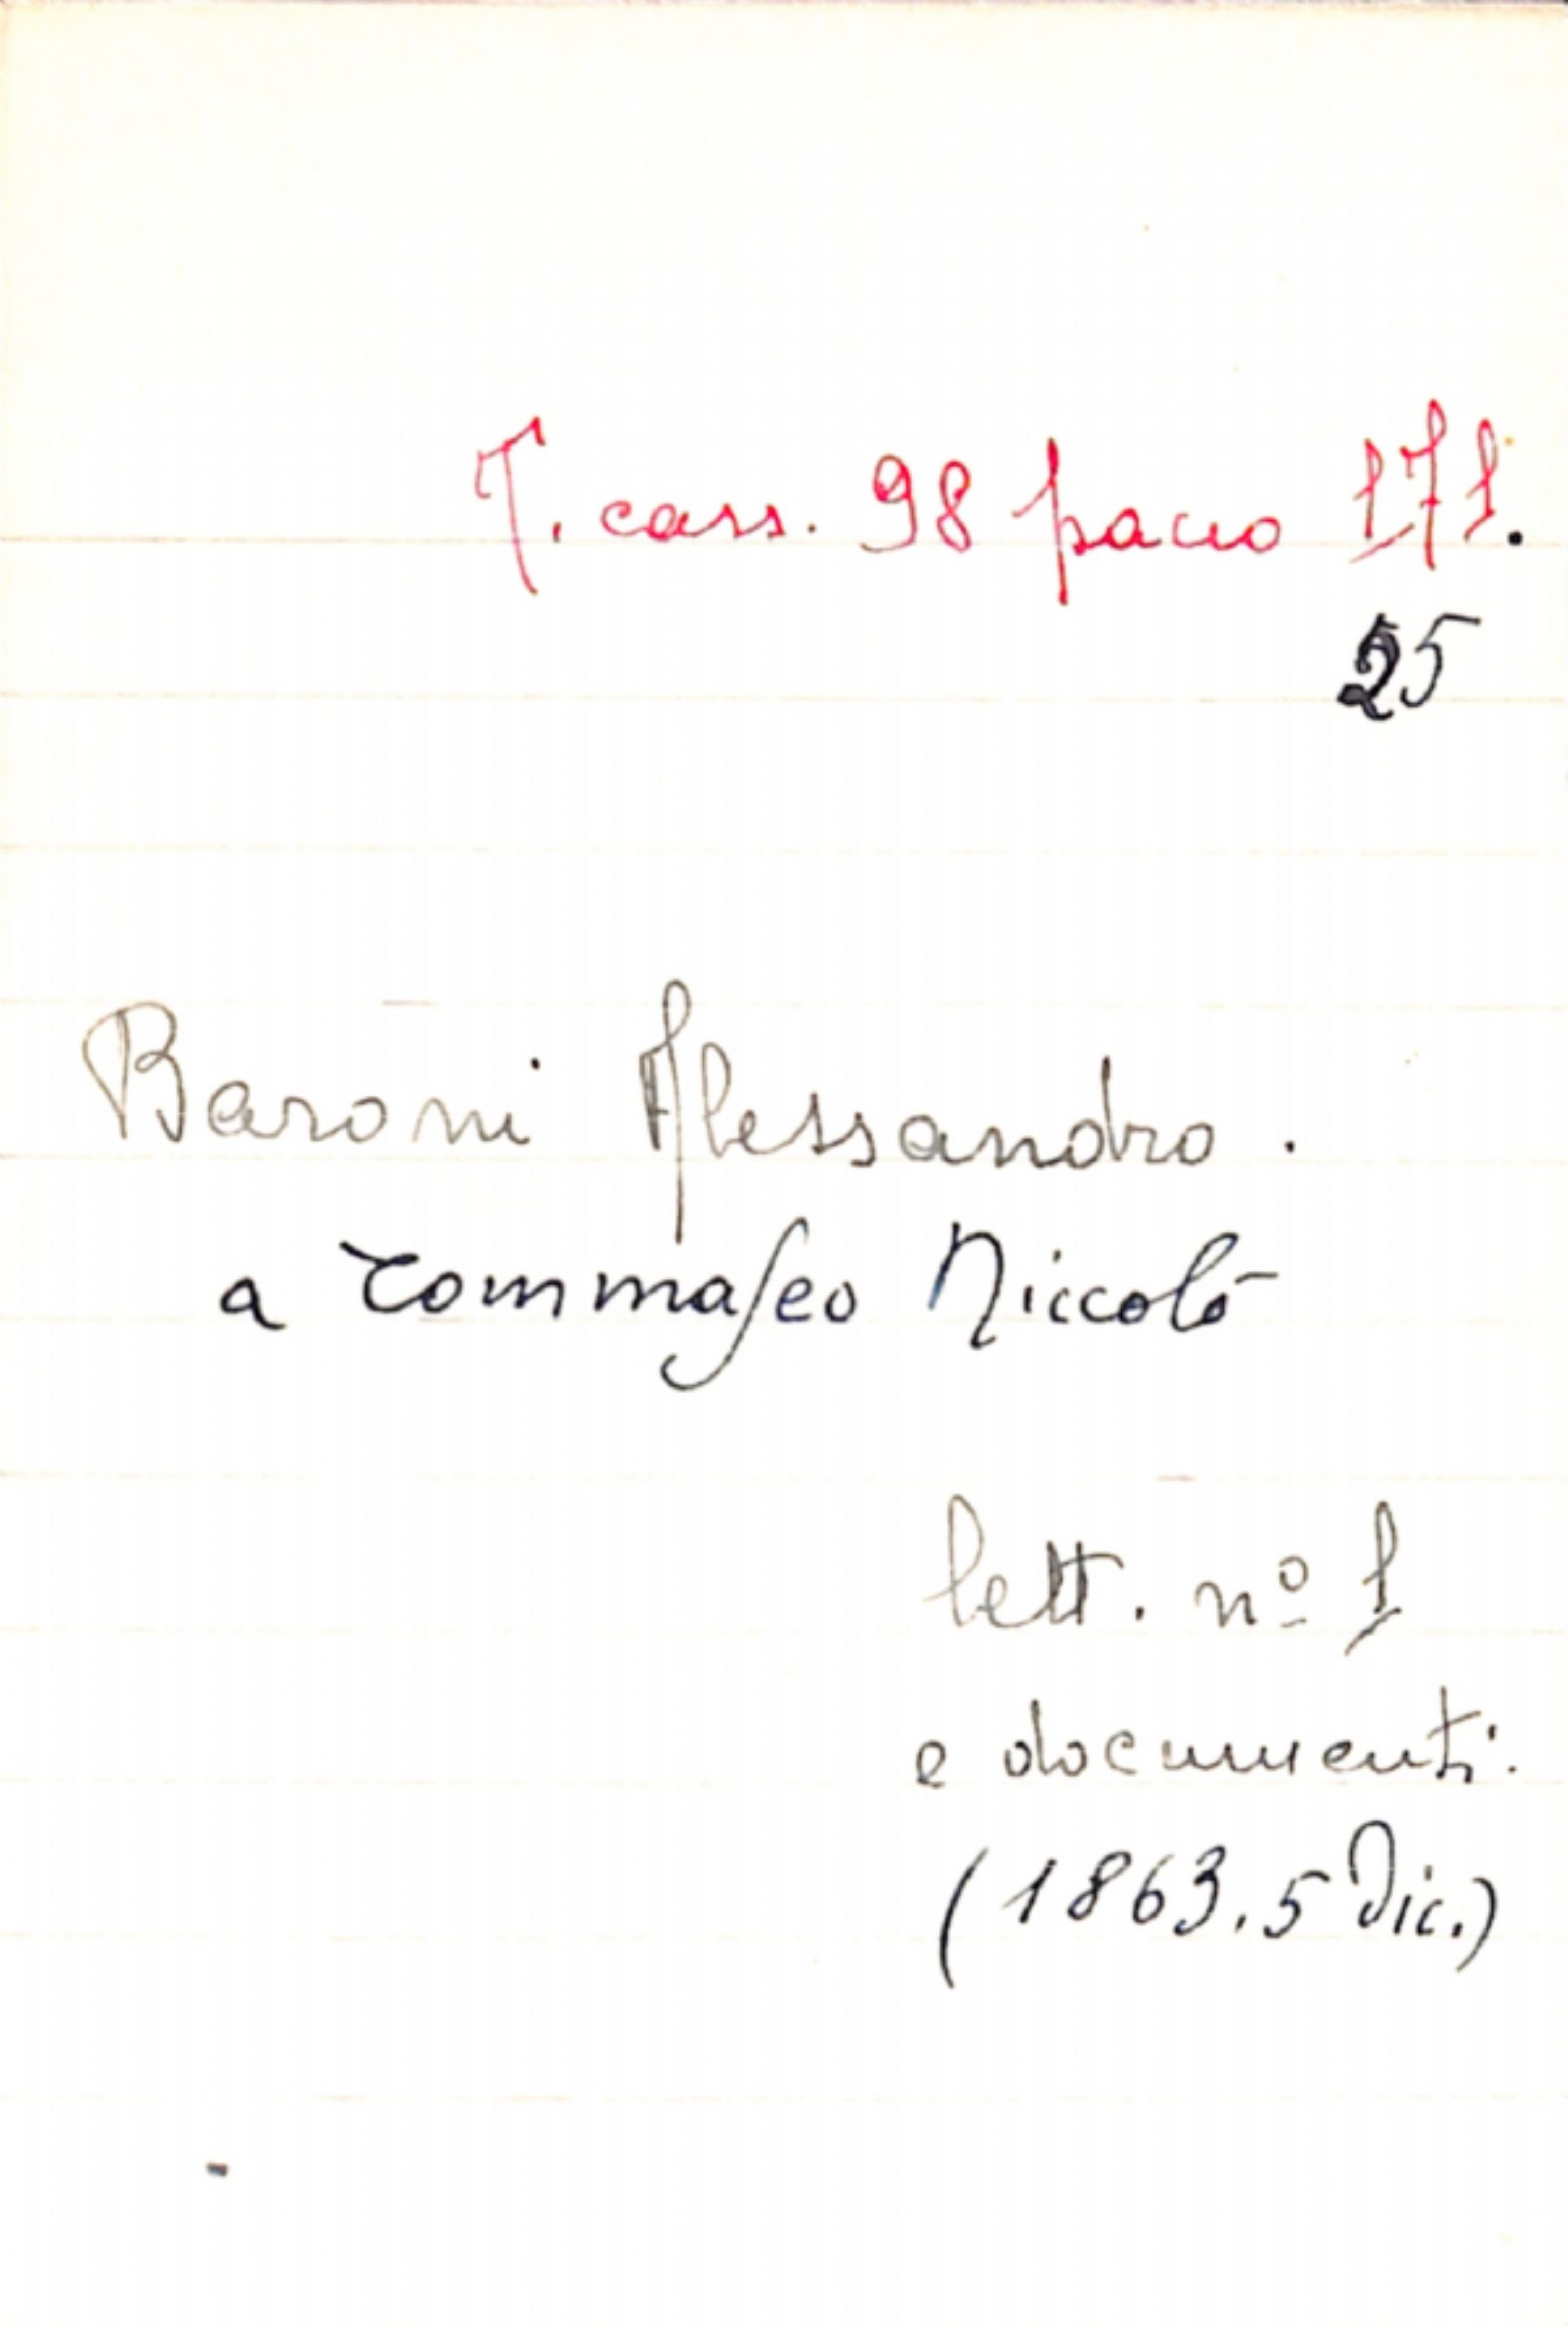 T. cass. 98 pacco 171.
25
Baroni Alessandro.
a Tommaseo Niccolò
lett. nº 1
e documenti.
(1863. 5 Dic.)